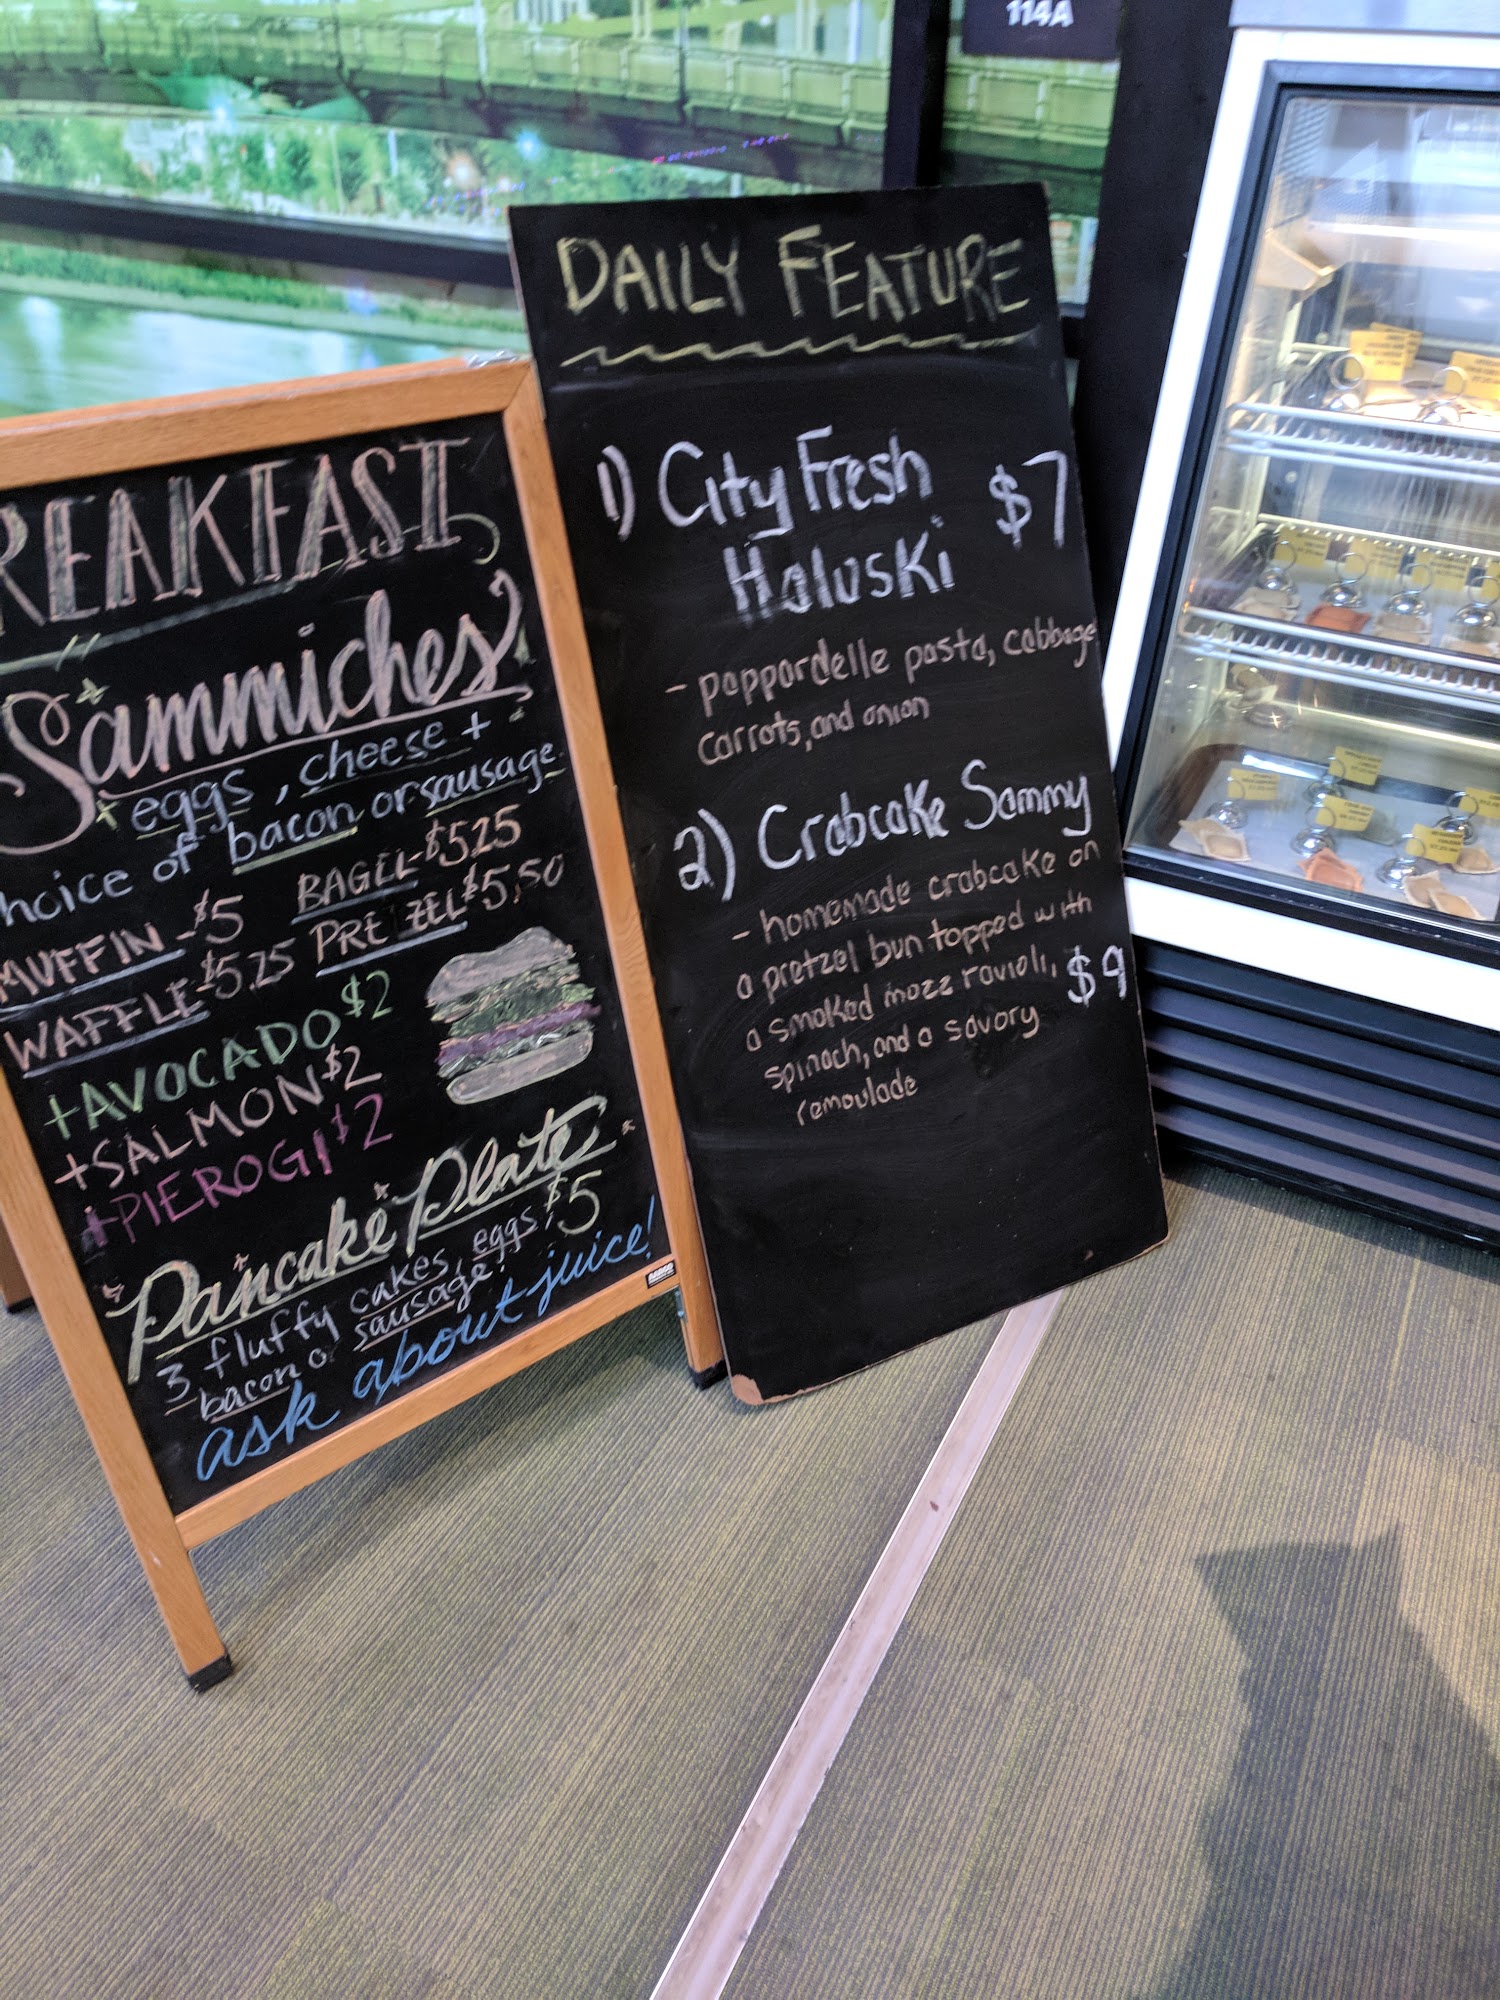 114A
DAILY FEATURE
1) City Fresh $7
Haluski
- pappardelle pasta, cabbage
carrots, and onion
2) Crabcake Sammy
- homemade crabcake on
a pretzel bun topped with
a smoked mozz ravioli, $9
spinach, and a savory
remoulade
REAKFAST
Sammiches
eggs, cheese +
hoice of bacon or sausage
MUFFIN - $5 BAGEL - $5.25
WAFFLE $5.25 PRETZEL $5.50
+AVOCADO $2
+SALMON $2
+PIEROGI $2
Pancake Plate
3 fluffy cakes, eggs, $5
bacon o sausage!
ask about juice!